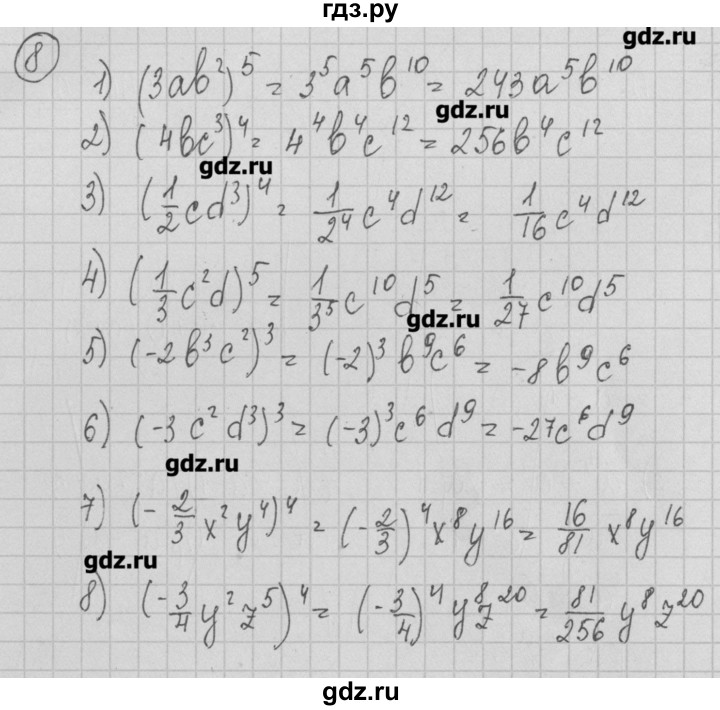 гдз.ру
gdz.ru
8
1) (3ab²)⁵ = 3⁵a⁵b¹⁰ = 243a⁵b¹⁰
gdz.ru
2) (4bc³)⁴ = 4⁴b⁴c¹² = 256b⁴c¹²
gdz.ru
3) (1/2 cd³)⁴ = 1/2⁴ c⁴d¹² = 1/16 c⁴d¹²
4) (1/3 c²d)⁵ = 1/3⁵ c¹⁰d⁵ = 1/27 c¹⁰d⁵
gdz.ru
5) (-2b³c²)³ = (-2)³b⁹c⁶ = -8b⁹c⁶
6) (-3c²d³)³ = (-3)³c⁶d⁹ = -27c⁶d⁹
gdz.ru
7) (-2/3 x²y⁴)⁴ = (-2/3)⁴x⁸y¹⁶ = 16/81 x⁸y¹⁶
gdz.ru
8) (-3/4 y²z⁵)⁴ = (-3/4)⁴y⁸z²⁰ = 81/256 y⁸z²⁰
gdz.ru